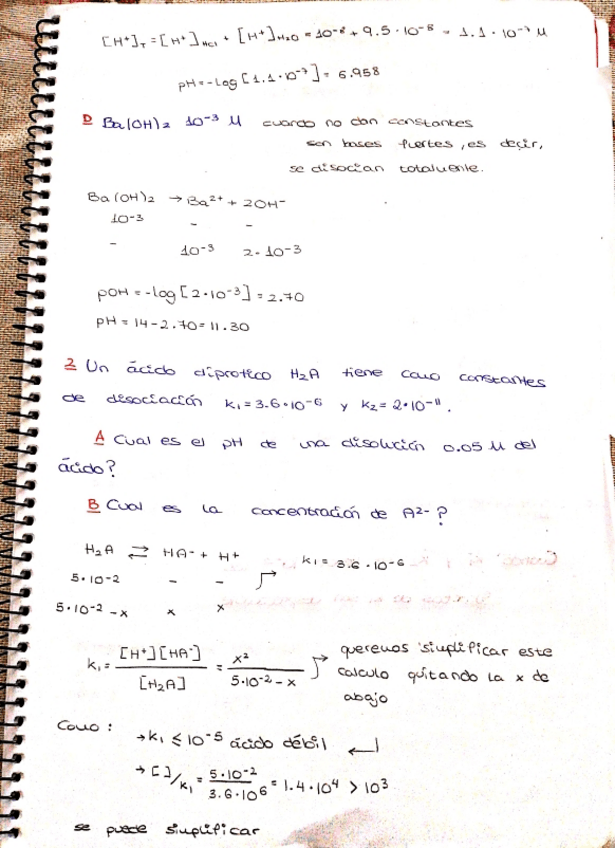 [H⁺]T = [H⁺]HCl + [H⁺]H2O = 10⁻⁸ + 9.5 · 10⁻⁸ = 1.1 · 10⁻⁷ M
pH = -log [1.1 · 10⁻⁷] = 6.958
D Ba(OH)₂ 10⁻³ M cuando no dan constantes
son bases fuertes, es decir,
se disocian totalmente.
Ba(OH)₂ → Ba²⁺ + 2OH⁻
10⁻³ - -
- 10⁻³ 2 · 10⁻³
pOH = -log [2 · 10⁻³] = 2.70
pH = 14 - 2.70 = 11.30
2 Un ácido diprótico H₂A tiene como constantes
de disociación k₁ = 3.6 · 10⁻⁶ y k₂ = 2 · 10⁻¹¹.
A Cual es el pH de una disolución 0.05 M del
ácido?
B Cual es la concentración de A²⁻?
H₂A ⇄ HA⁻ + H⁺ k₁ = 3.6 · 10⁻⁶
5 · 10⁻² - -
5 · 10⁻² - x x x
k₁ = [H⁺][HA⁻] / [H₂A] = x² / 5 · 10⁻² - x → queremos simplificar este
calculo quitando la x de
abajo
Como :
→ k₁ ≤ 10⁻⁵ ácido débil
→ [ ]/k₁ = 5 · 10⁻² / 3.6 · 10⁶ = 1.4 · 10⁴ > 10³
se puede simplificar